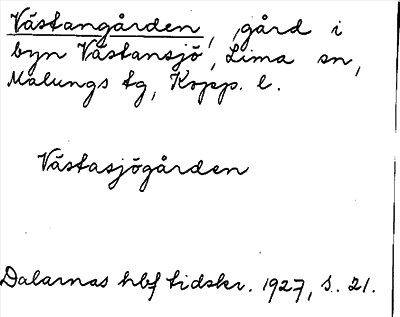 Västangården, gård i
byn Västansjö, Lima sn,
Malungs tg, Kopp. l.
Västasjögården
Dalarnas hbf tidskr. 1927, s. 21.